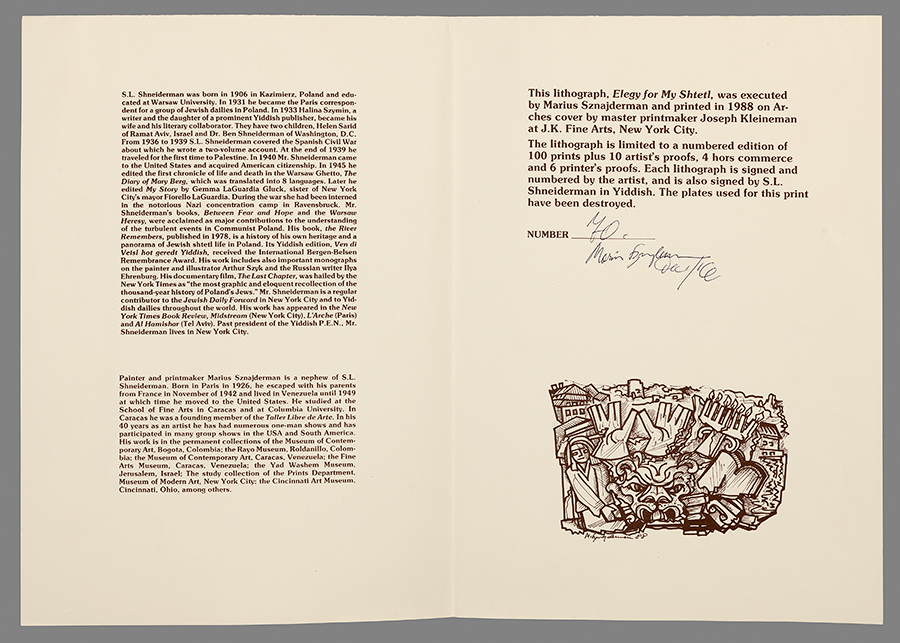 S.L. Shneiderman was born in 1906 in Kazimierz, Poland and edu-
cated at Warsaw University. In 1931 he became the Paris correspon-
dent for a group of Jewish dailies in Poland. In 1933 Halina Szymin, a
writer and the daughter of a prominent Yiddish publisher, became his
wife and his literary collaborator. They have two children, Helen Sarid
of Ramat Aviv, Israel and Dr. Ben Shneiderman of Washington, D.C.
From 1936 to 1939 S.L. Shneiderman covered the Spanish Civil War
about which he wrote a two-volume account. At the end of 1939 he
traveled for the first time to Palestine. In 1940 Mr. Shneiderman came
to the United States and acquired American citizenship. In 1945 he
edited the first chronicle of life and death in the Warsaw Ghetto, The
Diary of Mary Berg, which was translated into 8 languages. Later he
edited My Story by Gemma LaGuardia Gluck, sister of New York
City's mayor Fiorello LaGuardia. During the war she had been interned
in the notorious Nazi concentration camp in Ravensbruck. Mr.
Shneiderman's books, Between Fear and Hope and the Warsaw
Heresy, were acclaimed as major contributions to the understanding
of the turbulent events in Communist Poland. His book, the River
Remembers, published in 1978, is a history of his own heritage and a
panorama of Jewish shtetl life in Poland. Its Yiddish edition, Ven di
Veisl hot geredt Yiddish, received the International Bergen-Belsen
Remembrance Award. His work includes also important monographs
on the painter and illustrator Arthur Szyk and the Russian writer Ilya
Ehrenburg. His documentary film, The Last Chapter, was hailed by the
New York Times as "the most graphic and eloquent recollection of the
thousand-year history of Poland's Jews." Mr. Shneiderman is a regular
contributor to the Jewish Daily Forward in New York City and to Yid-
dish dailies throughout the world. His work has appeared in the New
York Times Book Review, Midstream (New York City), L'Arche (Paris)
and Al Hamishar (Tel Aviv). Past president of the Yiddish P.E.N., Mr.
Shneiderman lives in New York City.
Painter and printmaker Marius Sznajderman is a nephew of S.L.
Shneiderman. Born in Paris in 1926, he escaped with his parents
from France in November of 1942 and lived in Venezuela until 1949
at which time he moved to the United States. He studied at the
School of Fine Arts in Caracas and at Columbia University. In
Caracas he was a founding member of the Taller Libre de Arte. In his
40 years as an artist he has had numerous one-man shows and has
participated in many group shows in the USA and South America.
His work is in the permanent collections of the Museum of Contem-
porary Art, Bogota, Colombia; the Rayo Museum, Roldanillo, Colom-
bia; the Museum of Contemporary Art, Caracas, Venezuela; the Fine
Arts Museum, Caracas, Venezuela; the Yad Washem Museum,
Jerusalem, Israel; The study collection of the Prints Department,
Museum of Modern Art, New York City; the Cincinnati Art Museum,
Cincinnati, Ohio, among others.
This lithograph, Elegy for My Shtetl, was executed
by Marius Sznajderman and printed in 1988 on Ar-
ches cover by master printmaker Joseph Kleineman
at J.K. Fine Arts, New York City.
The lithograph is limited to a numbered edition of
100 prints plus 10 artist's proofs, 4 hors commerce
and 6 printer's proofs. Each lithograph is signed and
numbered by the artist, and is also signed by S.L.
Shneiderman in Yiddish. The plates used for this print
have been destroyed.
NUMBER